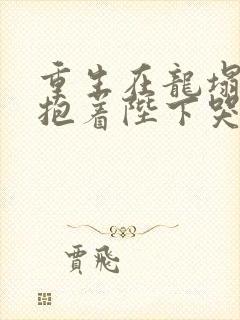 重生在龍塌
抱着陛下哭
賈飛